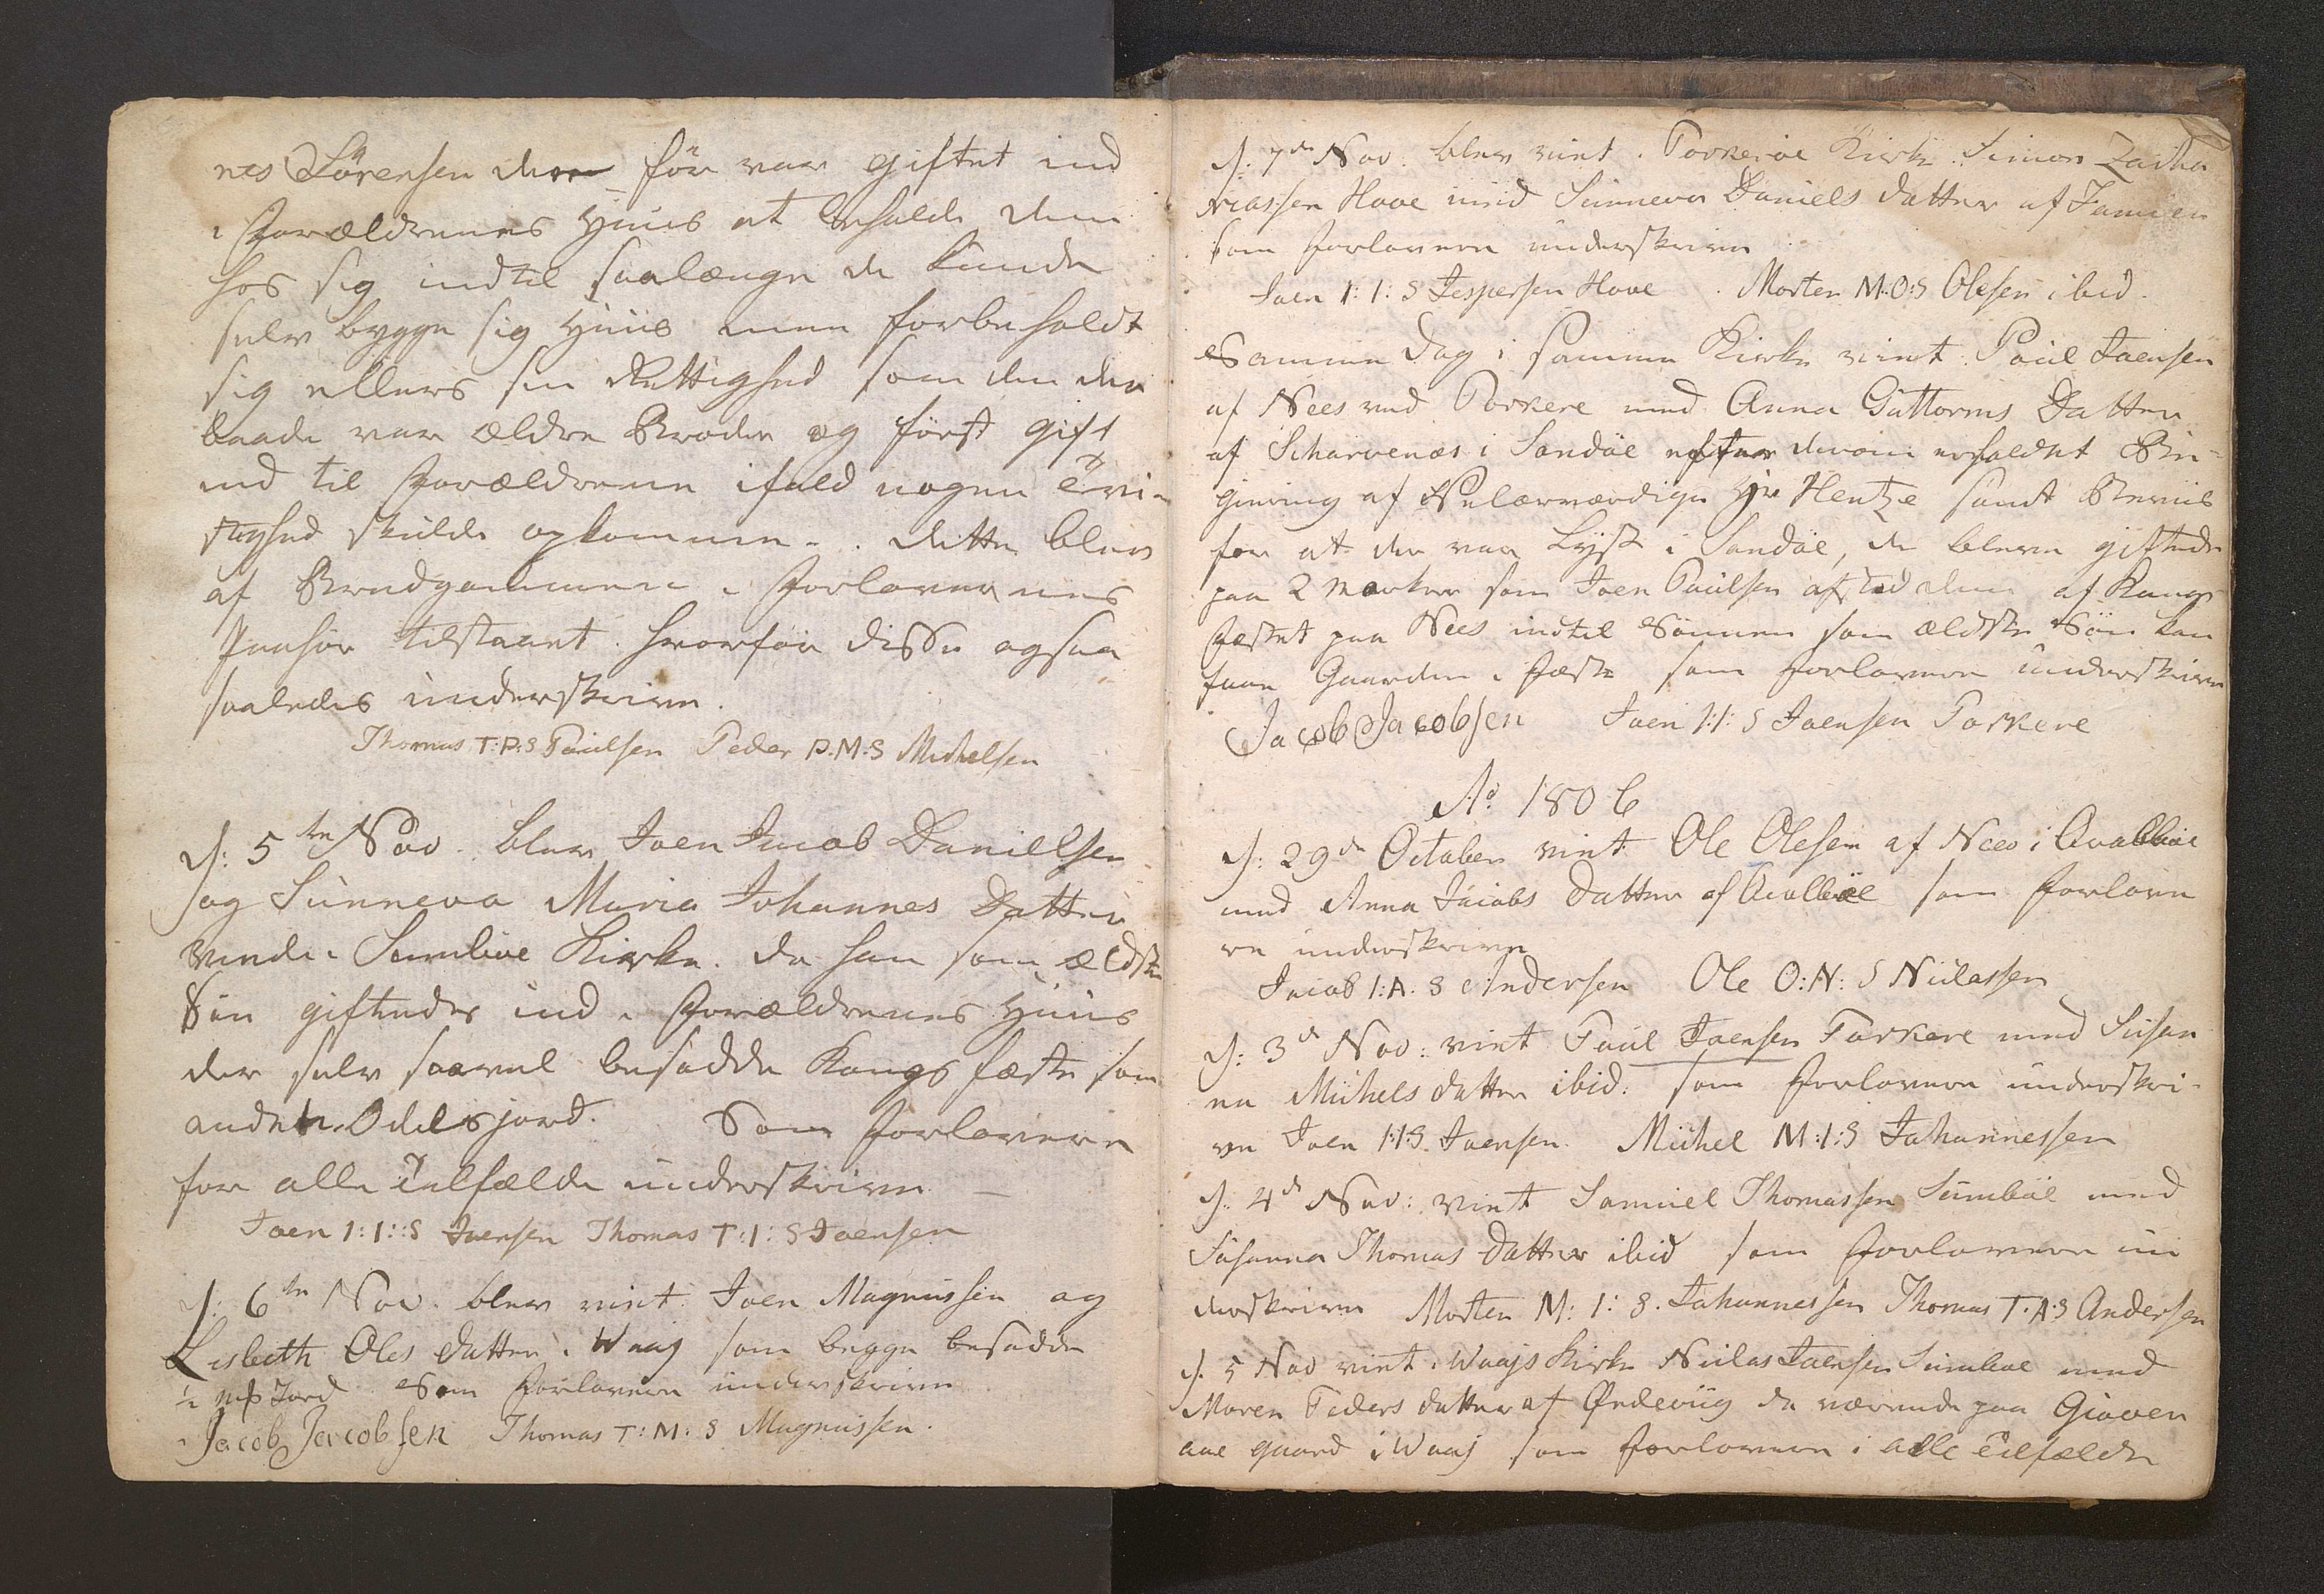 nes Sörensen der før var giftet ind
i Forældrenes Huus at beholde dem
hos sig indtil saalænge de kunde
selv bygge sig Huus men forbeholdt
sig ellers sin Rettighed som den der
baade var ældre Broder og först gift
ind til Forældrene ifald nogen Tvi-
stighed skulde opkomme. Dette blev
af Brudgommen i Forlovernes
Paahör tilstaaet hvorfor disse ogsaa
saaledes underskrive.
Thomas T:P:S Paulsen Peder P.M:S Michelsen
D: 5te Nov. blev Joen Jacob Daniellsen
og Sunneva Maria Johannes Datter
viede i Sumböe Kirke. da han som ældste
Sön giftedes ind i Forældrenes Huus
der selv saavel besadde Kongsfæste som
anden Odelsjord. Som Forlovere
for alle Tilfælde underskrive
Joen I:I:S Joensen Thomas T:I:S Joensen
D: 6te Nov. blev viet Joen Magnussen og
Lisbeth Oles Datter i Waaj som begge besadde
½ mk Jord. Som Forlovere underskrive
Jacob Jacobsen Thomas T:M:S Magnussen.
D: 7de Nov. blev viet i Porkeröe Kirke Simon Zacha
riassen Hove med Sunneva Daniels Datter af Famien
som Forlovere underskrive
Joen I:I:S Jespersen Hove. Morten M:O:S Olesen ibid.
Samme Dag i samme Kirke viet Poul Joensen
af Nees ved Porkere med Anna Guttorms Datter
af Scharvenæs i Sandöe efter derom erholdet Be-
gjering af Velærværdige Hr Hentze samt Beviis
for at der var Lyst i Sandöe, de bleve giftede
paa 2 Marker som Joen Poulsen aftod dem af Kongs
Fæstet paa Nees indtil Sönnen som ældste Sön kan
faae Gaarden i Fæste som Forlovere underskrive
Jacob Jacobsen Joen I:I:S Joensen Porkere
Ao 1806
D: 29de October viet Ole Olesen af Nees i Qvalböe
med Anna Jacobs Datter af Qvalböe som Forlove
re underskrive
Jacob I:A:S Andersen Ole O:N:S Niclassen
D: 3de Nov: viet Poul Joensen Porkere med Susan
na Michels Datter ibid: som Forlovere underskri-
ve Joen I:I:S. Joensen. Michel M:I:S Johannessen
D: 4de Nov: viet Samuel Thomassen Sumböe med
Susanna Thomas Datter ibid som Forlovere un
derskrive Morten M:I:S. Johannessen Thomas T:A:S Andersen
D. 5 Nov viet i Waajs Kirke Niclas Joensen Sumböe med
Maren Peders Datter af Ördeviig da værende paa Giover
aae gaard i Waaj som Forlovere i alle Tilfælde